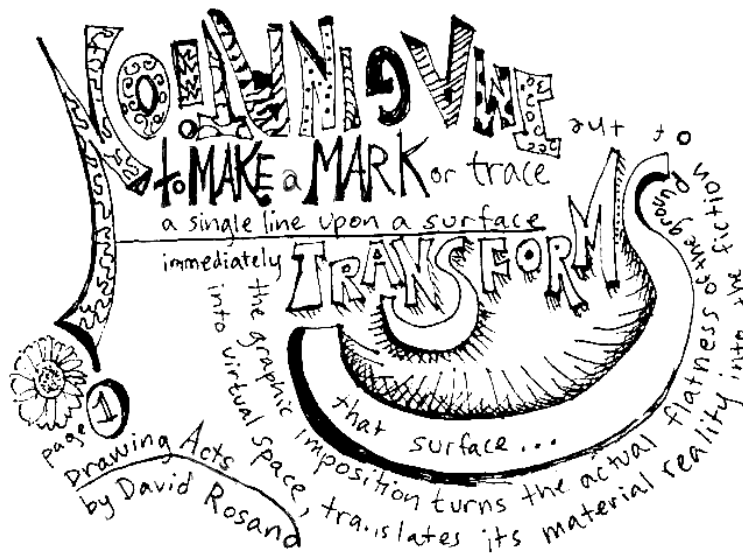 to MAKE a MARK or trace
a single line upon a surface
immediately TRANSFORMS
that surface...
the graphic imposition turns the actual flatness of the ground
into virtual space, translates its material reality into the fiction of the
IMAGINATION
page 1
Drawing Acts
by David Rosand